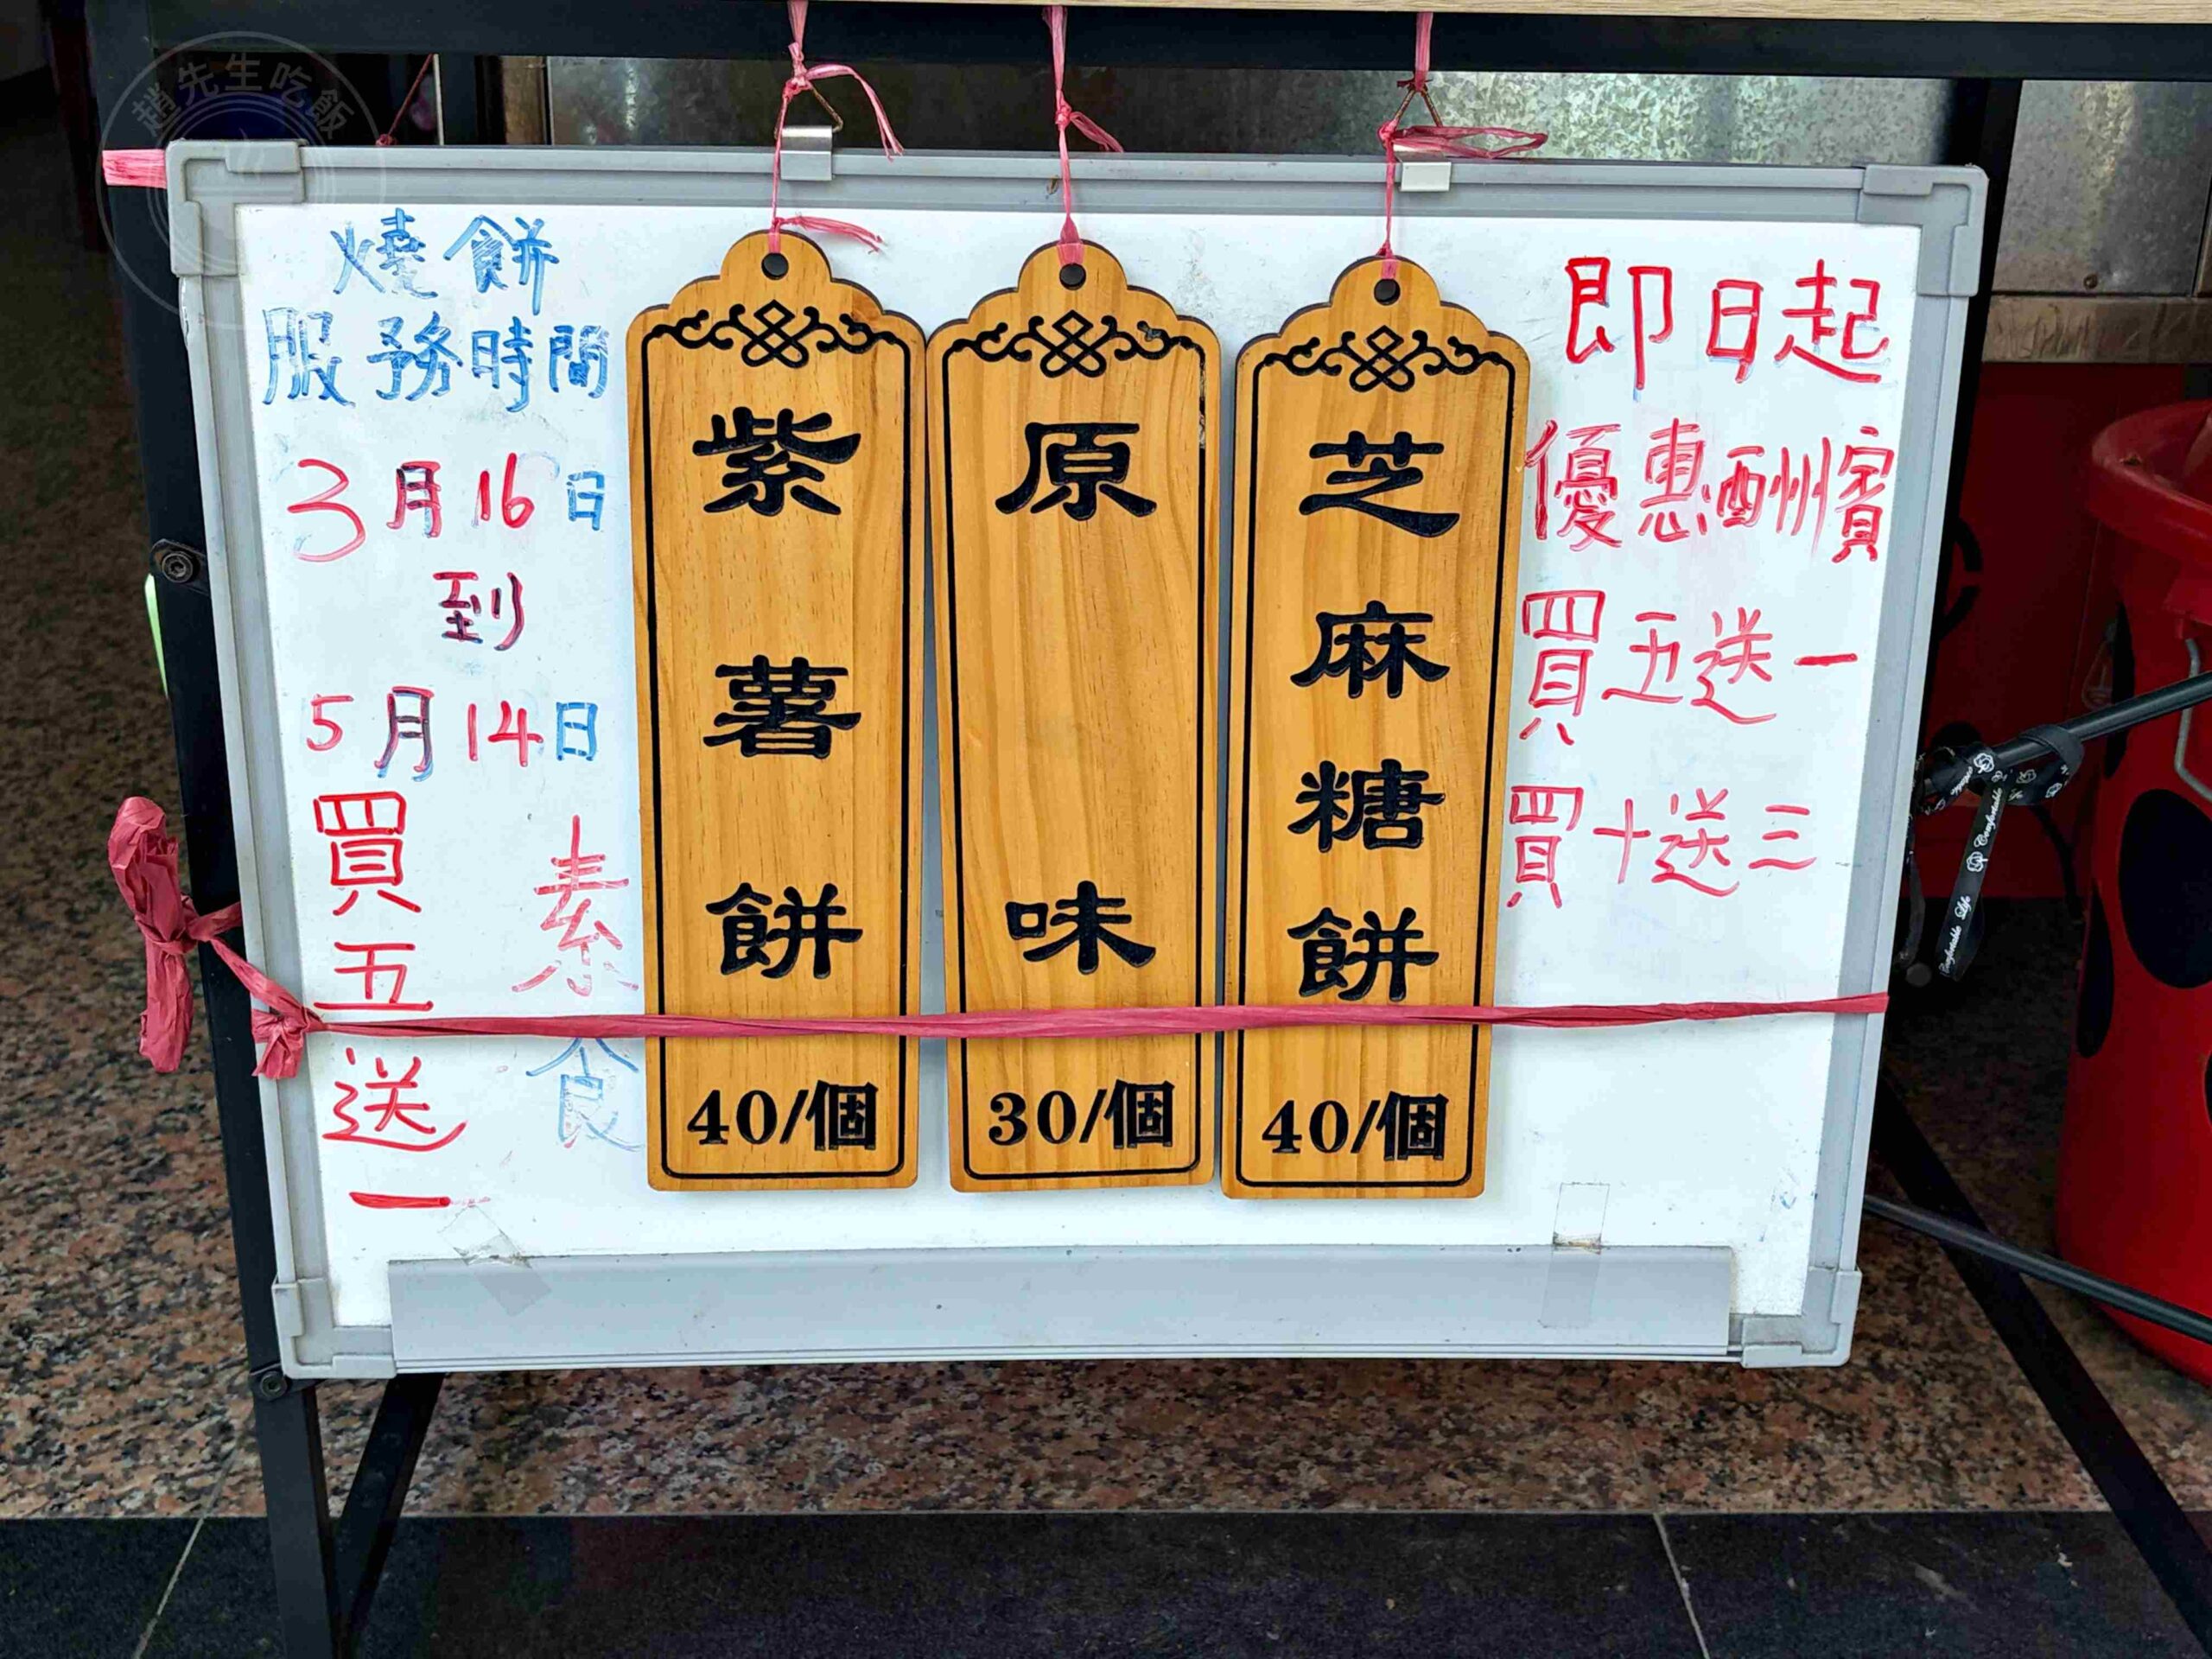 趙先生吃飯
燒餅
服務時間
3月16日
到
5月14日
買五送一
素食
紫薯餅
40/個
原味
30/個
芝麻糖餅
40/個
即日起
優惠酬賓
買五送一
買十送三
Comfortable
Comfortable Life